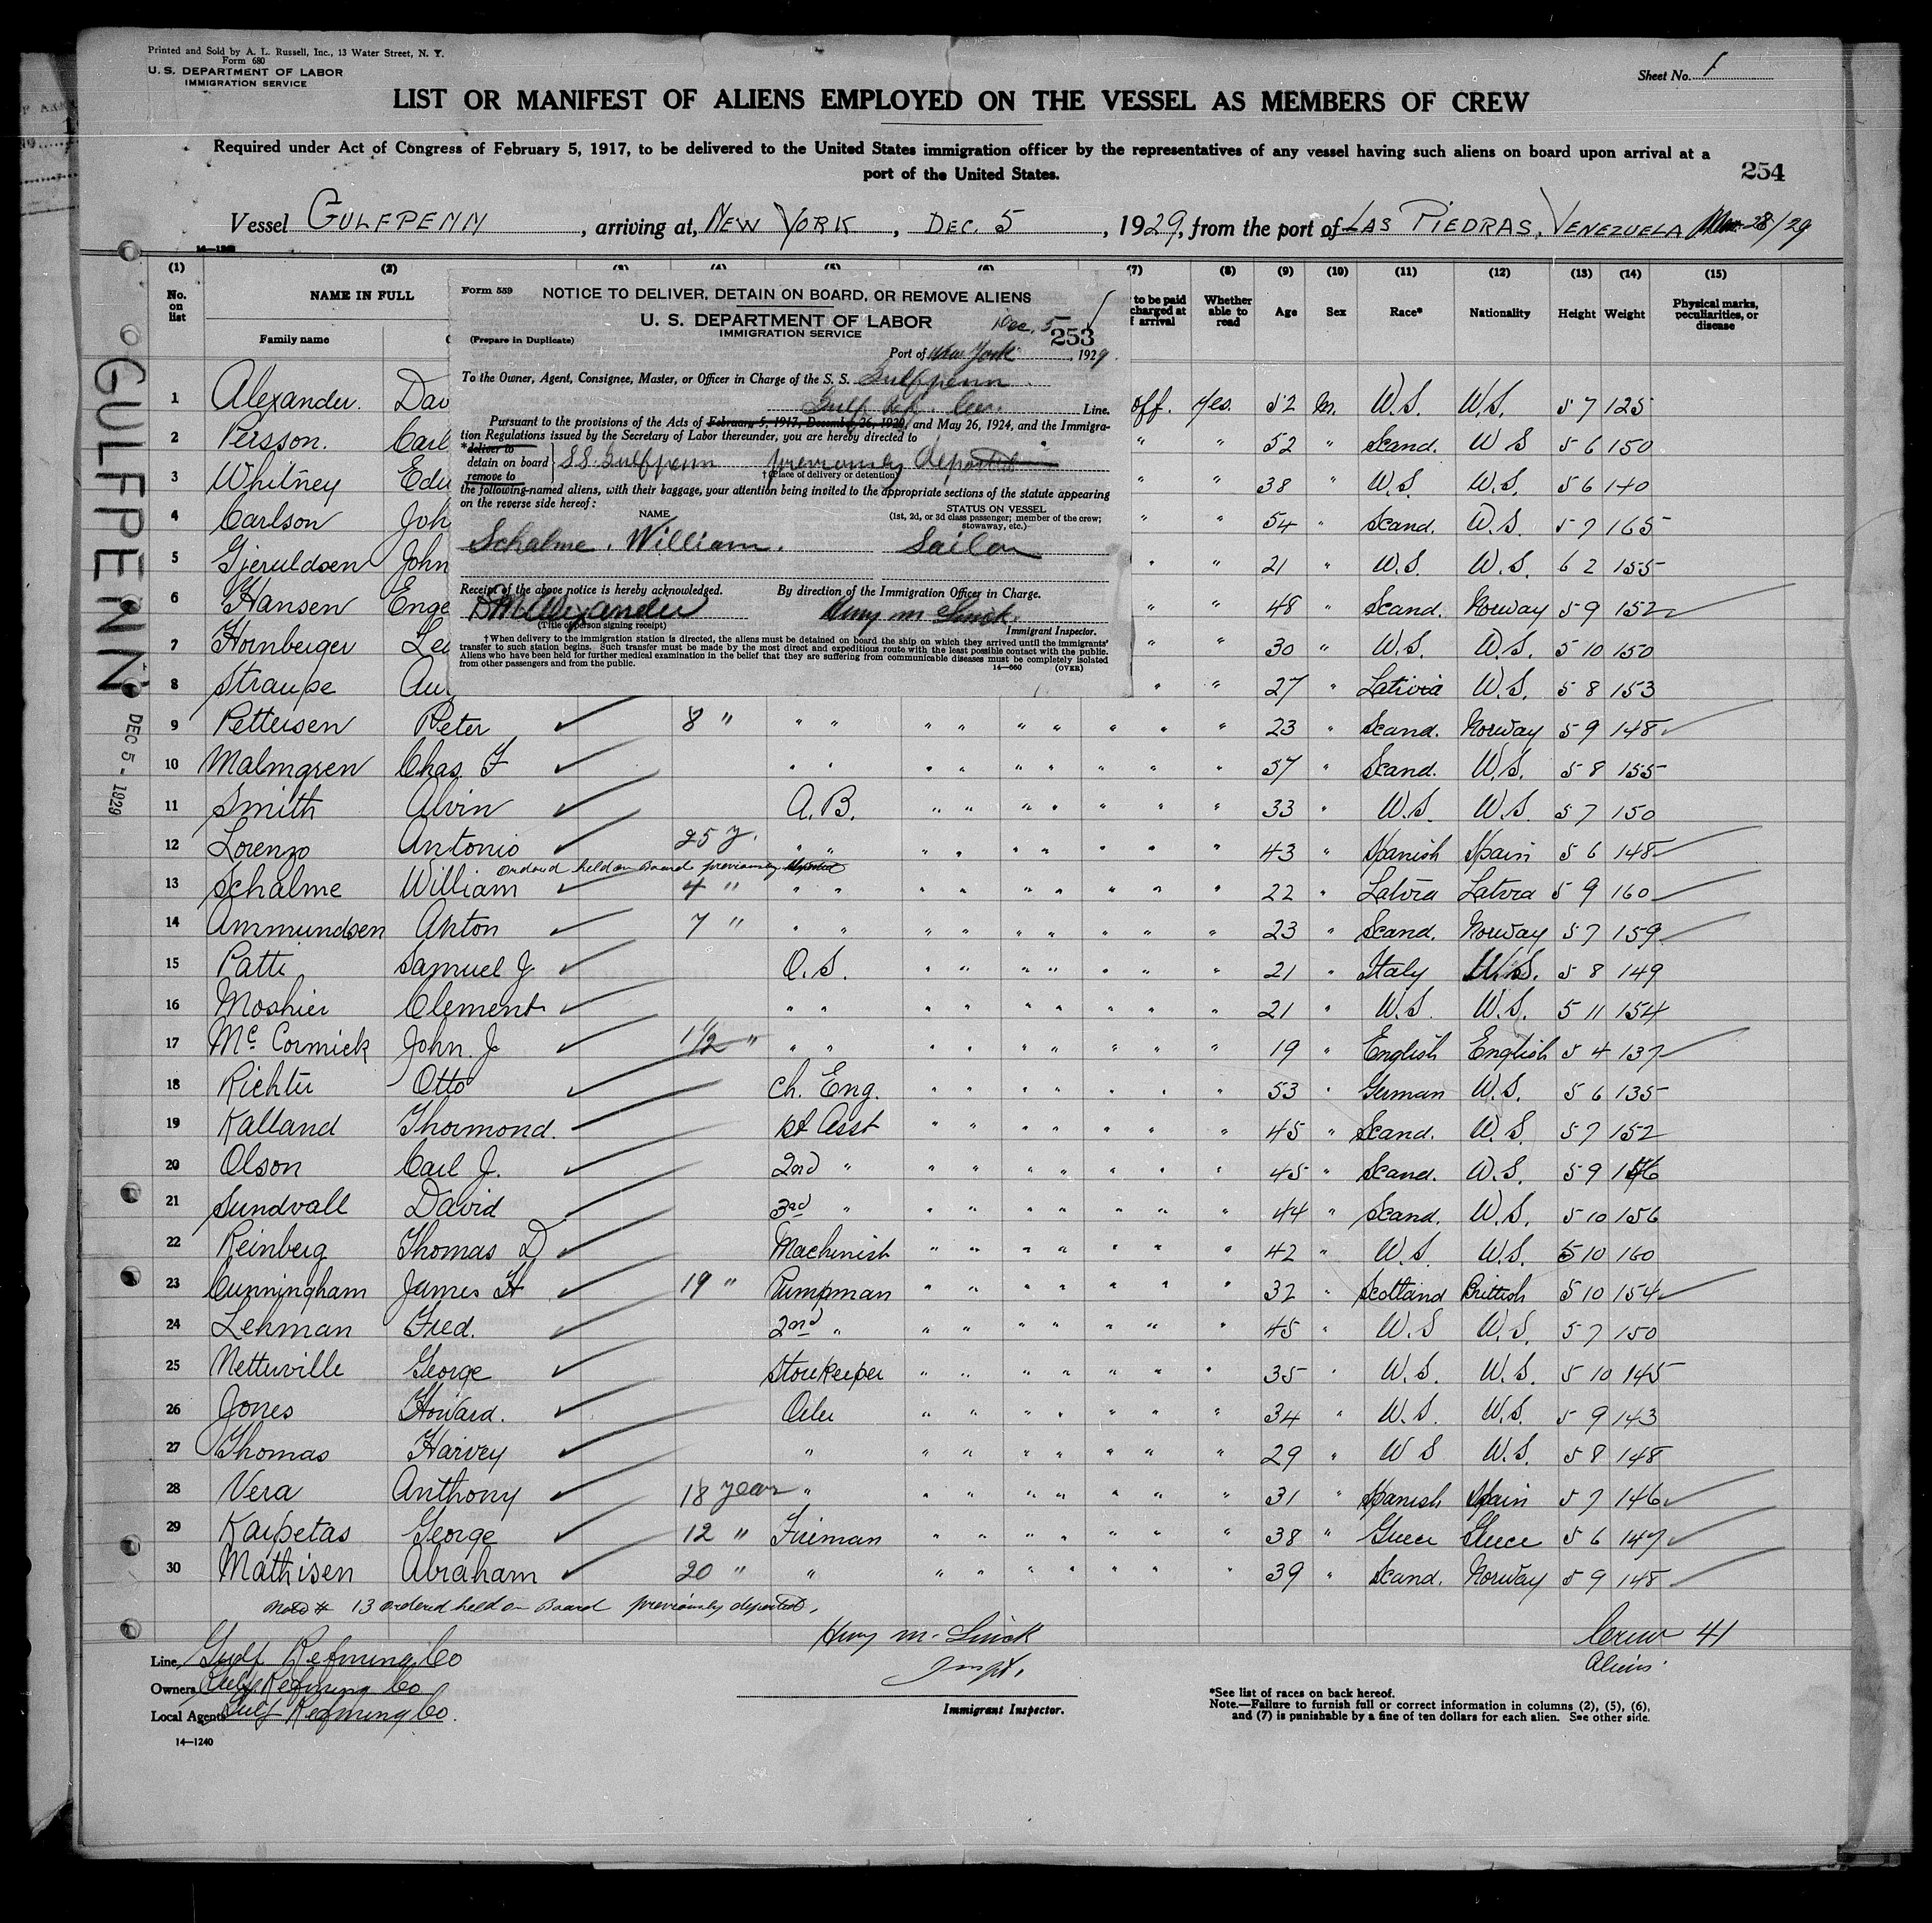 Printed and Sold by A. L. Russell, Inc., 13 Water Street, N. Y.
Form 680
U. S. DEPARTMENT OF LABOR
IMMIGRATION SERVICE
Sheet No. 1
LIST OR MANIFEST OF ALIENS EMPLOYED ON THE VESSEL AS MEMBERS OF CREW
Required under Act of Congress of February 5, 1917, to be delivered to the United States immigration officer by the representatives of any vessel having such aliens on board upon arrival at a
port of the United States.
254
Vessel GULFPENN, arriving at, NEW YORK, DEC. 5, 1929, from the port of LAS PIEDRAS, VENEZUELA 28/29
(1) (2) (3) (4) (5) (6) (7) (8) (9) (10) (11) (12) (13) (14) (15)
No. on list NAME IN FULL to be paid charged at f arrival Whether able to read Age Sex Race* Nationality Height Weight Physical marks, peculiarities, or disease
Family name
Form 559 NOTICE TO DELIVER, DETAIN ON BOARD, OR REMOVE ALIENS
U. S. DEPARTMENT OF LABOR
IMMIGRATION SERVICE
Dec. 5
253
(Prepare in Duplicate)
Port of New York, 1929
To the Owner, Agent, Consignee, Master, or Officer in Charge of the S. S. Gulfpenn
Gulf Ref. Co. Line.
Pursuant to the provisions of the Acts of February 5, 1917, December 26, 1920, and May 26, 1924, and the Immigra-
tion Regulations issued by the Secretary of Labor thereunder, you are hereby directed to
*deliver to
detain on board SS. Gulfpenn previously deported
remove to
†(Place of delivery or detention)
the following-named aliens, with their baggage, your attention being invited to the appropriate sections of the statute appearing
on the reverse side hereof:
NAME STATUS ON VESSEL
(1st, 2d, or 3d class passenger; member of the crew;
stowaway, etc.)
Schalme, William. Sailor
Receipt of the above notice is hereby acknowledged. By direction of the Immigration Officer in Charge.
D M Alexander
(Title of person signing receipt) Immigrant Inspector.
†When delivery to the immigration station is directed, the aliens must be detained on board the ship on which they arrived until the immigrants'
transfer to such station begins. Such transfer must be made by the most direct and expeditious route with the least possible contact with the public.
Aliens who have been held for further medical examination in the belief that they are suffering from communicable diseases must be completely isolated
from other passengers and from the public.
14—660 (OVER)
1 Alexander. Dav off. Yes. 52 M. U.S. U.S. 5 7 125
2 Persson. Carl " " 52 " Scand. U S 5 6 150
3 Whitney Edu " " 38 " U.S. U.S. 5 6 140
4 Carlson Joh " " 54 " Scand. U.S. 5 7 165
5 Gjeruldsen John " " 21 " U.S. U.S. 6 2 155
6 Hansen Enge " " 48 " Scand. Norway 5 9 152
7 Hornberger Le " " 30 " U.S. U.S. 5 10 150
8 Straupe Au " " 27 " Latvia U.S. 5 8 153
9 Pettersen Peter 8 " " " " " " " " " " 23 " Scand. Norway 5 9 148
10 Malmgren Chas. F " " " " " " " " " 37 " Scand. U.S. 5 8 155
11 Smith Alvin A.B. " " " " " " " 33 " U.S. U.S. 5 7 150
12 Lorenzo Antonio 25 y. " " " " " " " " " 43 " Spanish Spain 5 6 148
Ordered held on Board previously deported
13 Schalme William 4 " " " " " " " " " " 22 " Latvia Latvia 5 9 160
14 Ammundsen Anton 7 " " " " " " " " " " 23 " Scand. Norway 5 7 159
15 Patti Samuel J. O.S. " " " " " " " 21 " Italy U.S. 5 8 149
16 Moshier Clement " " " " " " " " " 21 " U.S. U.S. 5 11 154
17 McCormick John. J 1 1/2 " " " " " " " " " " 19 " English English 5 4 137
18 Richter Otto Ch. Eng. " " " " " " " 53 " German U.S. 5 6 135
19 Kalland Thormond. 1st Asst " " " " " " " 45 " Scand. U.S. 5 7 152
20 Olson Carl J. 2nd " " " " " " " " 45 " Scand. U.S. 5 9 156
21 Sundvall David 3rd " " " " " " " " 44 " Scand. U.S. 5 10 156
22 Reinberg Thomas D Machinist " " " " " " " 42 " U.S. U.S. 5 10 160
23 Cunningham James H 19 " Pumpman " " " " " " " 32 " Scotland British 5 10 154
24 Lehman Fred. 2nd " " " " " " " " 45 " U.S U.S. 5 7 150
25 Netterville George Storekeeper " " " " " " " 35 " U.S. U.S. 5 10 145
26 Jones Howard. Oiler " " " " " " " 34 " U.S. U.S. 5 9 143
27 Thomas Harvey " " " " " " " " 29 " U S U.S. 5 8 148
28 Vera Anthony 18 years " " " " " " " " 31 " Spanish Spain 5 7 146
29 Kaipetas George 12 " Fireman " " " " " " " 38 " Greece Greece 5 6 147
30 Mathisen Abraham 20 " " " " " " " " " 39 " Scand. Norway 5 9 148
Note # 13 Ordered held on Board previously deported.
Inspt.
Crew 41
Aliens
Line Gulf Refining Co
Owners Gulf Refining Co
Local Agents Gulf Refining Co.
Immigrant Inspector.
*See list of races on back hereof.
Note.—Failure to furnish full or correct information in columns (2), (5), (6),
and (7) is punishable by a fine of ten dollars for each alien. See other side.
14—1240
GULFPENN
DEC 5 - 1929